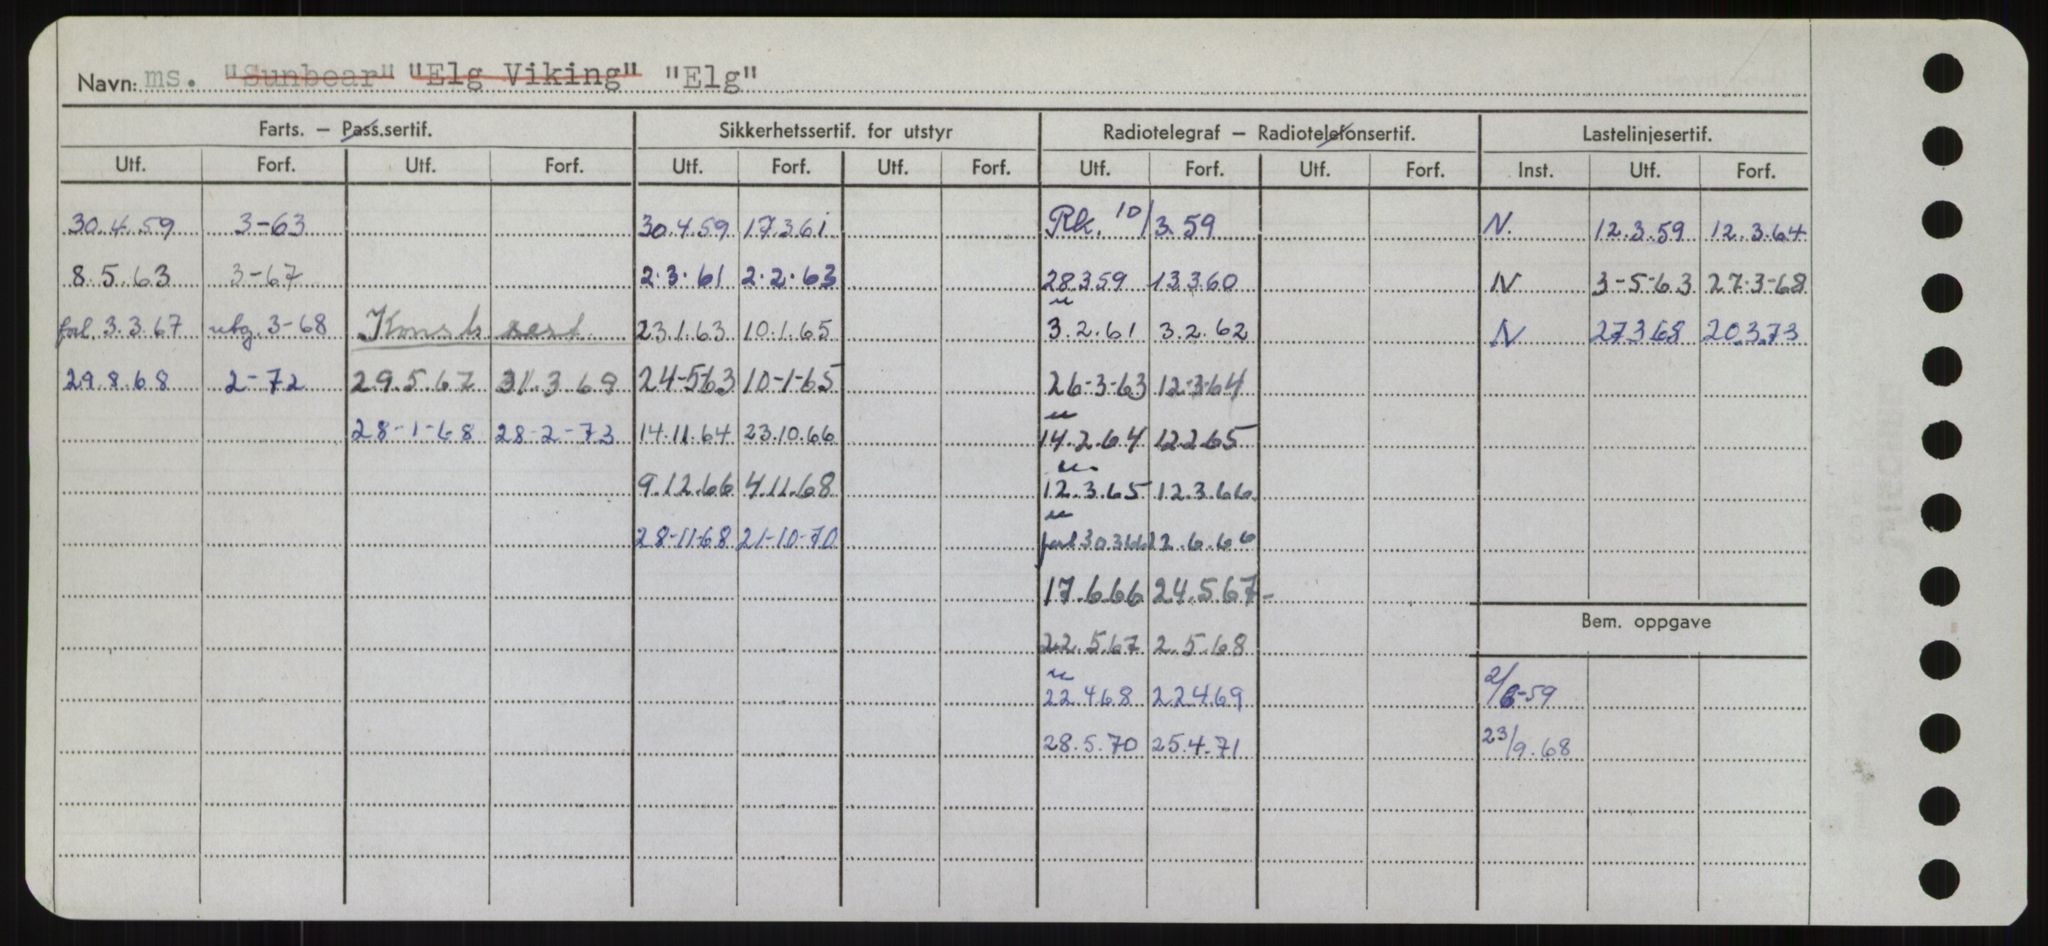 Navn: ms. "Sunbear" "Elg Viking" "Elg"
Farts. – Pass.sertif. Sikkerhetssertif. for utstyr Radiotelegraf – Radiotelefonsertif. Lastelinjesertif.
Utf. Forf. Utf. Forf. Utf. Forf. Utf. Forf. Utf. Forf. Utf. Forf. Inst. Utf. Forf.
30.4.59 3-63 30.4.59 17.3.61 Rk. 10/3.59 N. 12.3.59 12.3.64
8.5.63 3-67 2.3.61 2.2.63 28.3.59 13.3.60 N 3-5-63 27.3-68
forl. 3.3.67 utg. 3-68 Konstr. sert. 23.1.63 10.1.65 3.2.61 3.2.62 N 27.3.68 20.3.73
29.8.68 2-72 29.5.67 31.3.69 24-5.63 10-1-65 26-3-63 12-3-64
28-1-68 28-2-73 14.11.64 23.10.66 14.2.64 12.2.65
9.12.66 4.11.68 12.3.65 12.3.66
28-11-68 21-10-70 forl 30.3.66 12.6.66
17.6.66 24.5.67-
22.5.67 2.5.68
Bem. oppgave
22.4.68 22.4.69 2/6-59
28.5.70 25.4.71 23/9.68